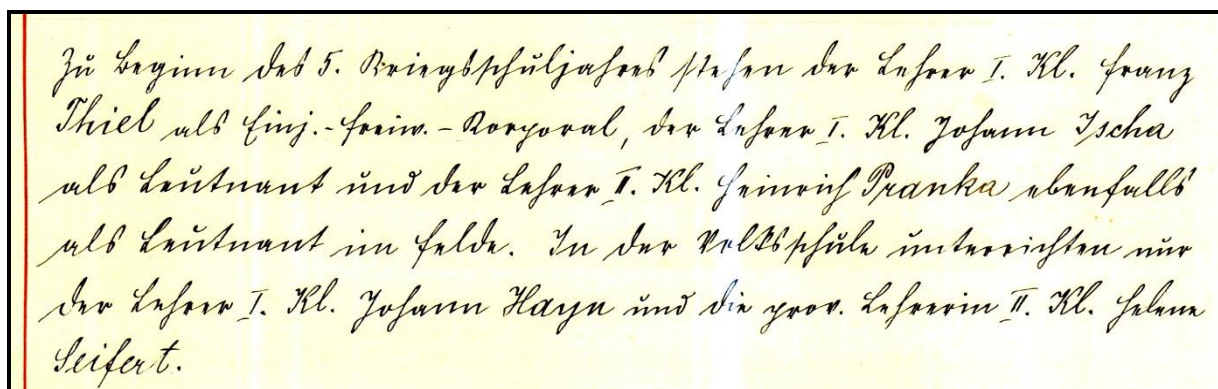 Zu Beginn des 5. Kriegsschuljahres stehen der Lehrer I. Kl. Franz
Thiel als Einj.-Freiw.-Korporal, der Lehrer I. Kl. Johann Ischa
als Leutnant und der Lehrer II. Kl. Heinrich Pranka ebenfalls
als Leutnant im Felde. In der Volksschule unterrichten nur
der Lehrer I. Kl. Johann Hayn und die prov. Lehrerin II. Kl. Helene
Seifert.